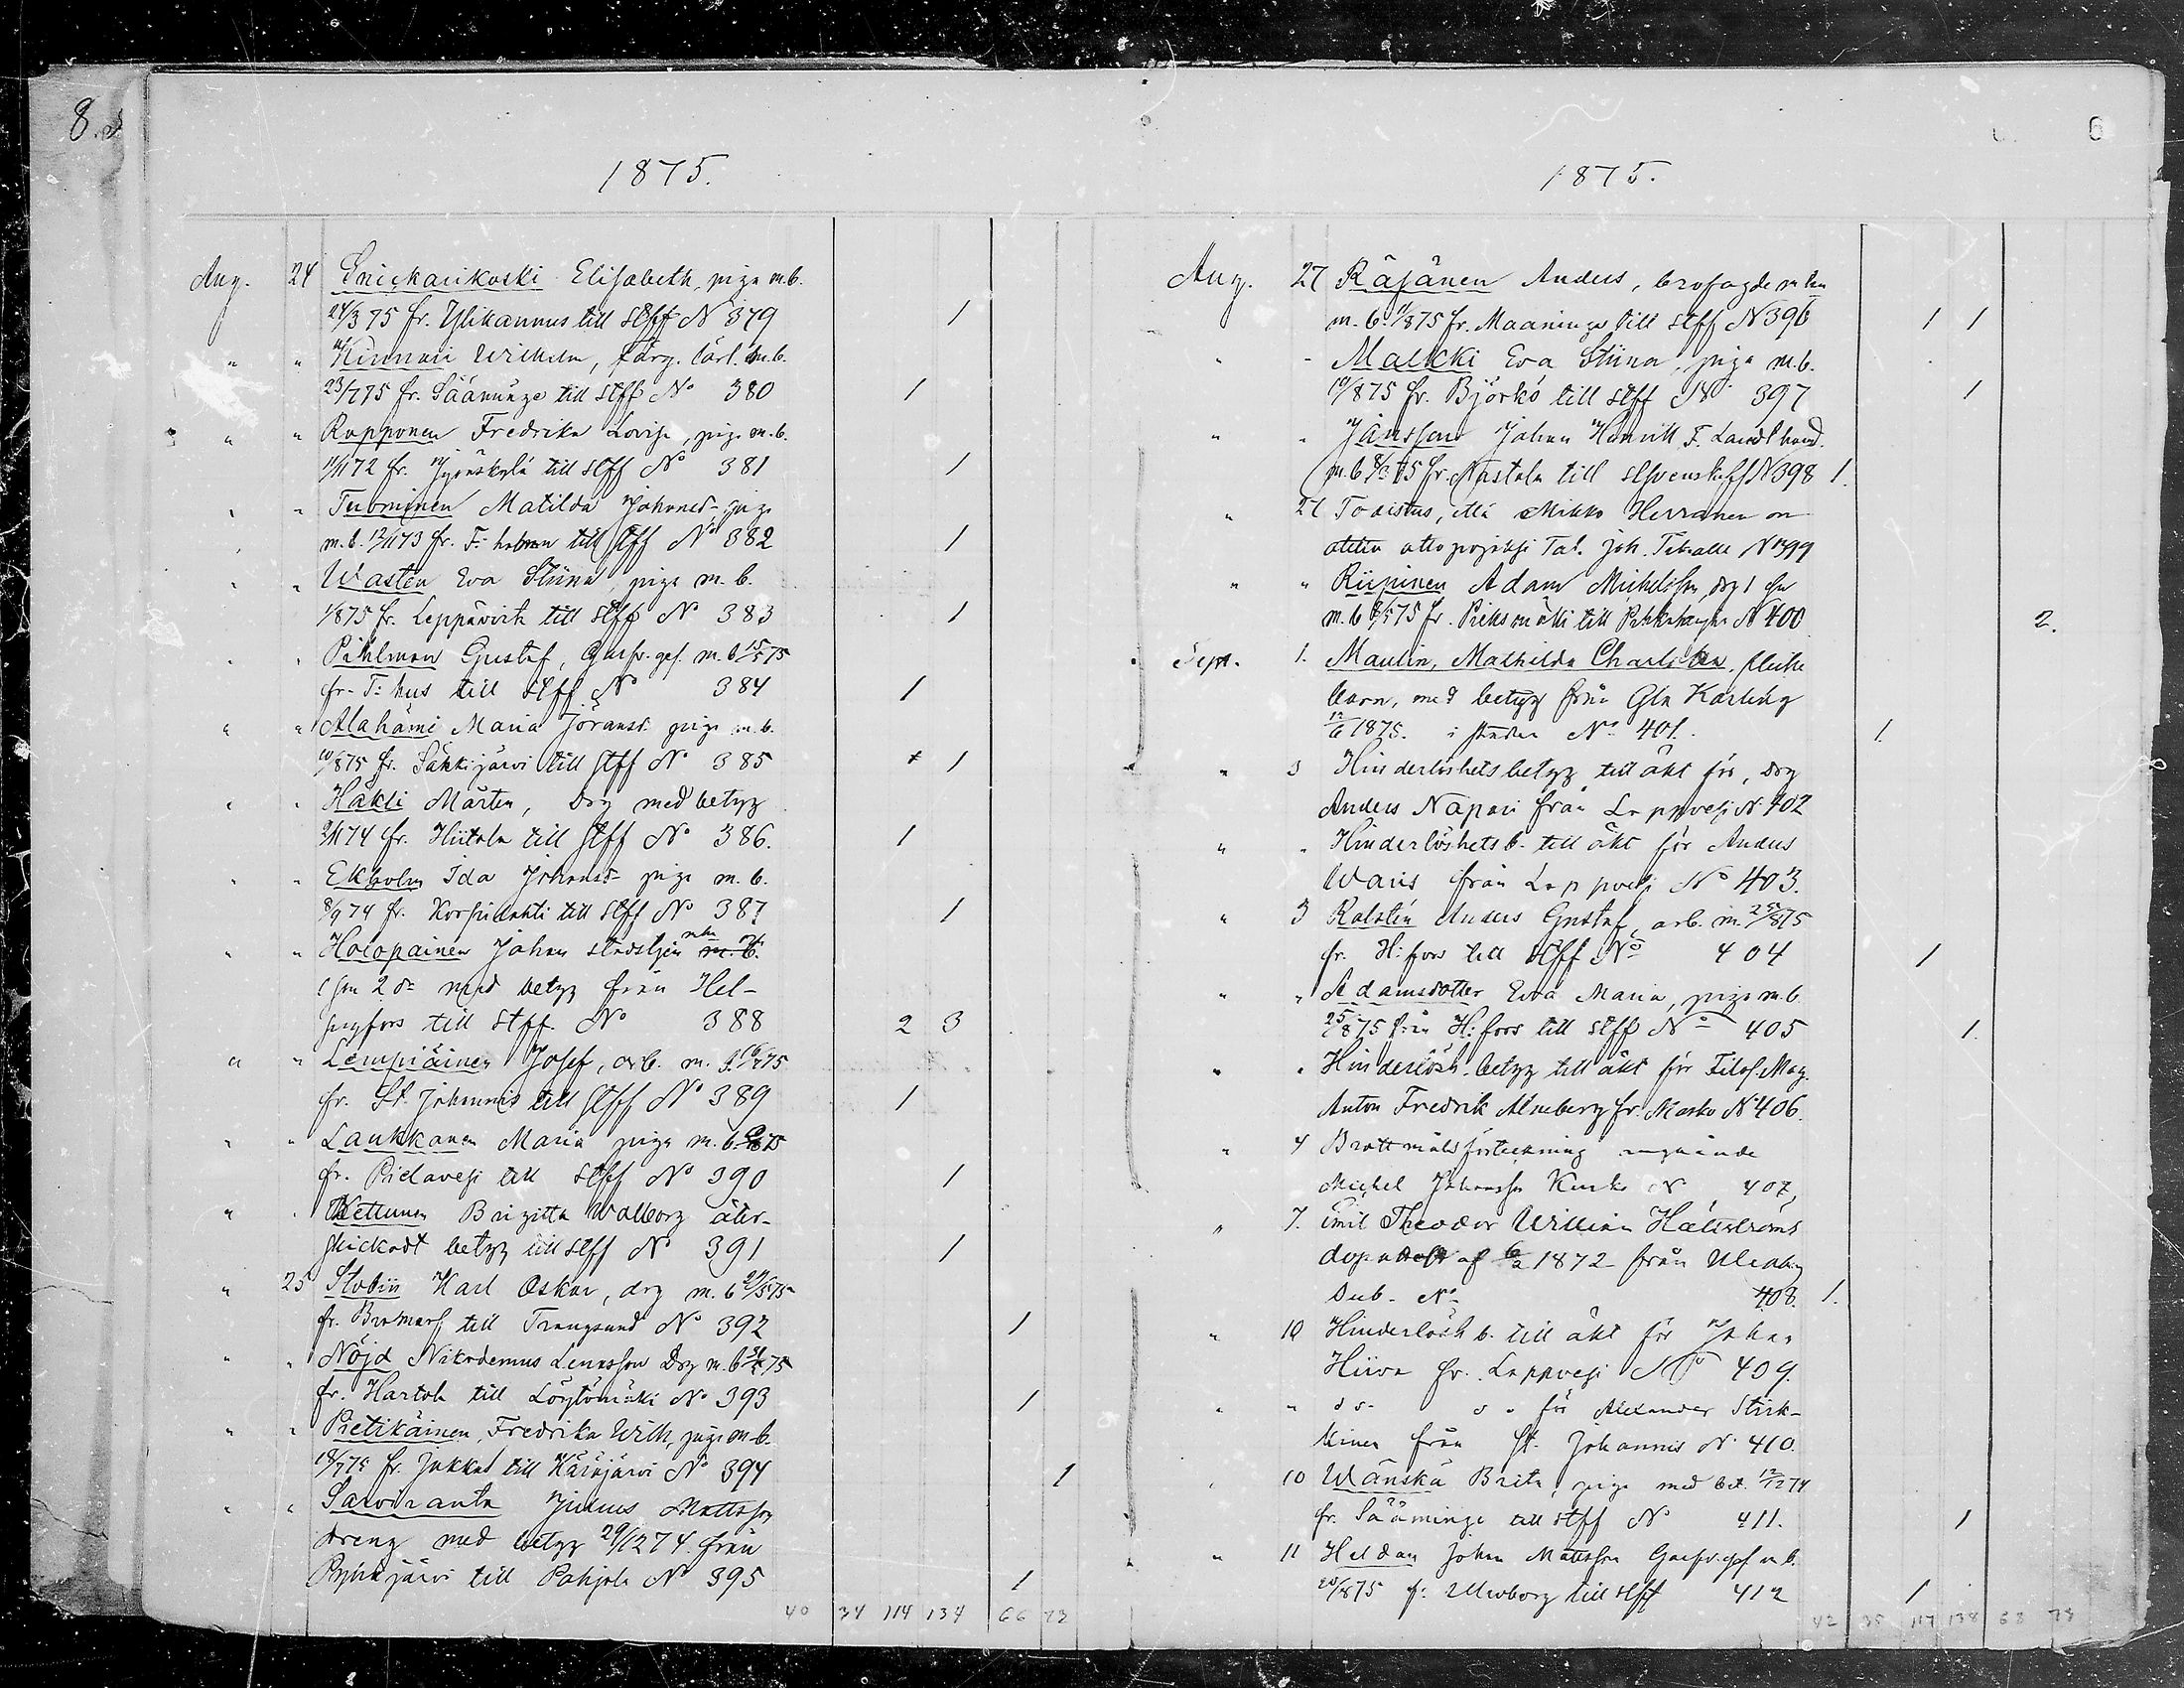 8.
6
1875.
Aug. 24 Snickarikoski Elisabeth, piga m.b.
24/3 75 fr. Ylikannus till Stff No 379 1
" " Kinnari Wilhelm, färg. lärl. m.b.
23/7 75 fr. Sääminge till Stff No 380 1
" " Rapponen Fredrika Lovisa, piga m.b.
11/11 72 fr. Jyväskylä till Stff No 381 1
" " Tuominen Matilda Johansd- piga
m.b. 12/11 73 fr. F:hamn till Stff No 382 1
" " Wasten Eva Stiina piga m.b.
1/8 75 fr. Leppävirta till Stff No 383 1
" " Pihlman Gustaf, Garfv. ges. m.b. 15/5 75
fr. T:hus till Stff No 384 1
" " Alahämi Maria Jöransd. piga m.b.
10/8 75 fr. Säkkijärvi till Stff No 385 1
" " Häkli Mårten, drg med betyg
2/11 74 fr. Hiitola till Stff No 386. 1
" " Ekholm Ida Johansd- piga m.b.
8/9 74 fr. Korpilahti till Stff No 387 1
" " Holopainen Johan m.b.
1 son 2 dr med betyg från Hel-
singfors till Stff. No 388 2 3
" " Lempiäinen Josef, arb. m. b. 75
fr. St. Johannis till Stff No 389 1
" " Laukkanen Maria piga m.b. 75
fr. Pielavesi till Stff No 390 1
" " Kettunen Brigitta Walborg åter-
skickadt betyg till Stff No 391 1
" 25 Slobiin Karl Oskar, drg m.b. 75
fr. Bromarf till Trångsund No 392 1
" " Nöjd Nikodemus Lenasson Drg m.b. 75
fr. Hartola till Löytömäki No 393 1
" " Pietikäinen, Fredrika Wilh, piga m.b.
18/7 75 fr. Jokkas till Käräjärvi No 394 1
" " Sarviranta Julius Mattsson
dreng med betyg 29/12 74. från
Pyhäjärvi till Pohjola No 395 1
40 34 114 134 66 73
1875.
Aug. 27 Räsänen Anders, brofogde m hu
m.b. 11/8 75 fr. Maaninga till Stff No 396 1 1
" - Malkki Eva Stiina, piga m.b.
10/8 75 fr. Björkö till Stff No 397 1
" " Jansson Johan Henrik F. Landthand.
m.b. 75 fr. Nastola till Svenskaff No 398 1.
" 27 Todistus, että Mikko Herranen on
otettu ottopojaksi Tal. Joh. No 399
" " Riipinen Adam Michelsson drg 1 son
m.b. 75 fr. Pieksmäki till No 400 2.
Sept. 1. Maulin, Mathilda Charlotta,
barn, med betyg från Gla Karleby
1875. i staden No 401. 1.
" 3 Hinderlöshetsbetyg till äkt för, drg
Anders Napari från Lappvesi No 402
" " Hinderlöshetsb. till äkt för Anders
Waris från Lappvesi No 403.
" 3 Ralstén Anders Gustaf, arb. m. 25/8 75
fr. H:fors till Stff No 404 1
" " Adamsdotter Eva Maria, piga m.b.
25/8 75 från H:fors till Stff No 405 1.
" " Hinderlösh. betyg till äkt för Filos. Mag.
Anton Fredrik Almberg fr. Masko No 406.
" 4 Brottmålsförteckning angående
Michel Johansson No 407,
" 7. Emil Theodor William Hällströms
dopattest af 1872 från Uleåby
Dub. No 408. 1.
" 10 Hinderlösh b. till äkt för Johan
Hiiva fr. Lappvesi No 409.
" " do- do för Alexander Stirk-
kinen från St. Johannis No 410.
" 10 Wänskä Brita, piga med bet. 12/12 74
fr. Sääminge till Stff No 411. 1
" 11 Heldan Johan Mattsson Garfv. ges m.b.
20/8 75 fr. Uleåborg till Stff 412 1
42 35 117 138 68 73